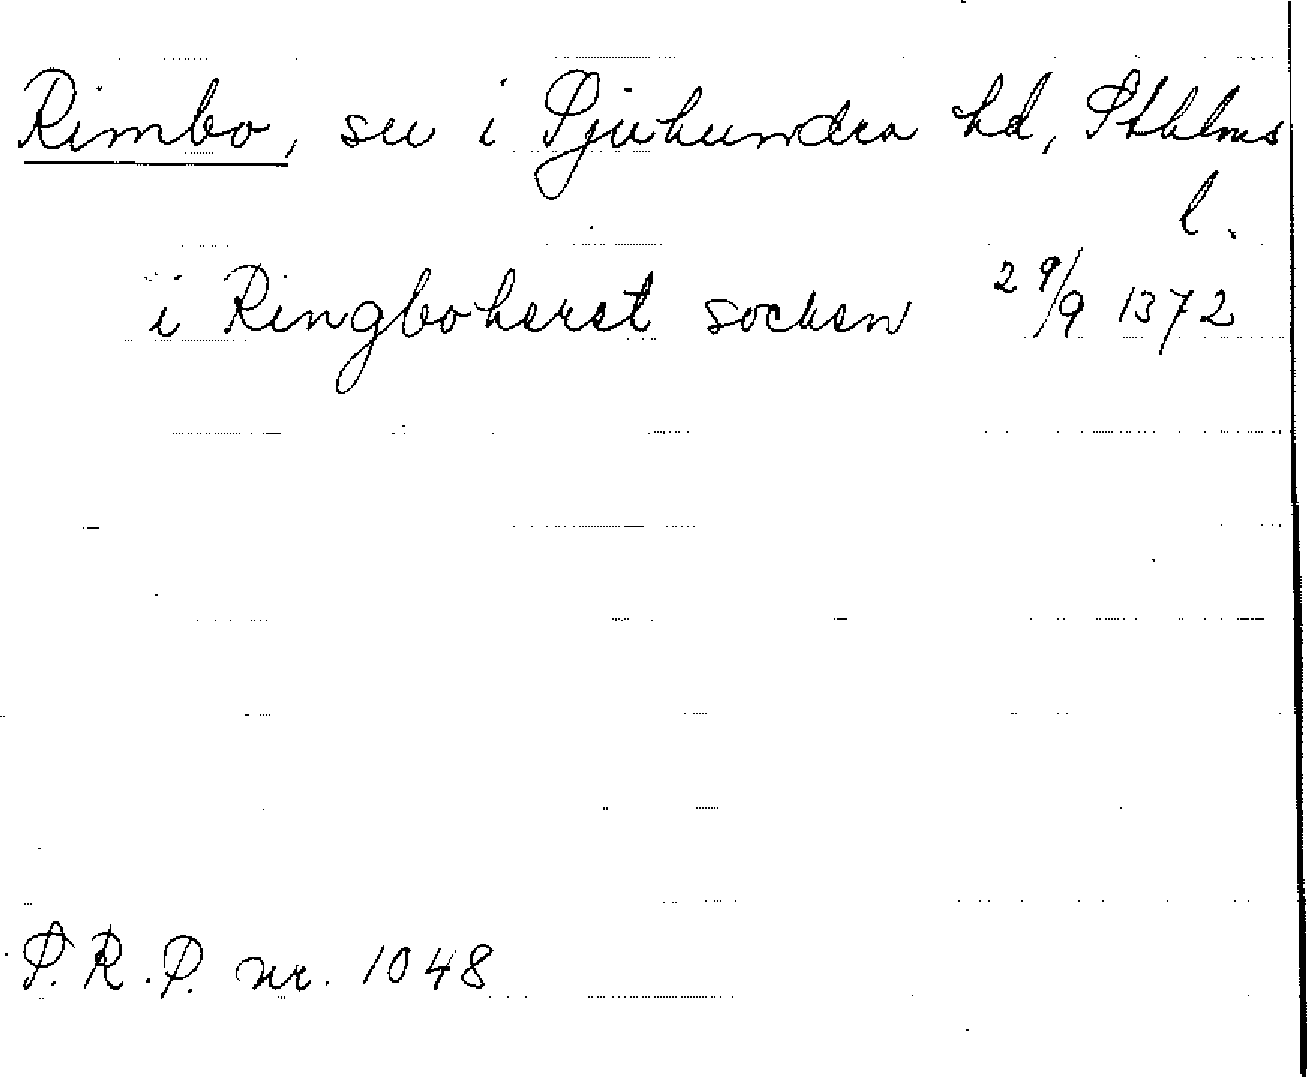 Rimbo, sn i Sjuhundra hd, Sthlms
l.
i Ringboherat socken 29/9 1372
S.R.P. nr. 1048